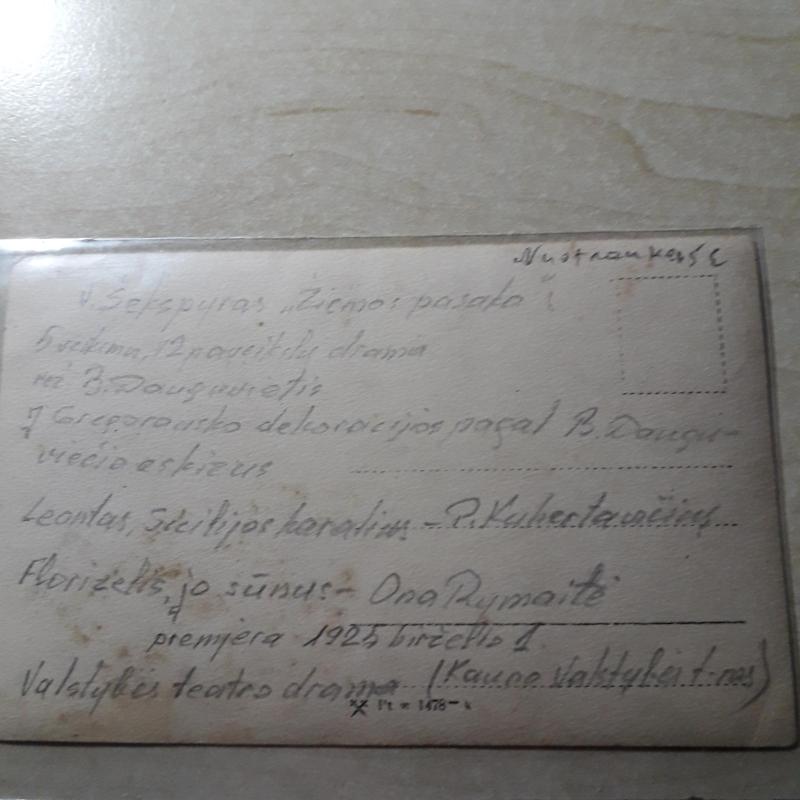 Nuotrauka
V. Šekspyras „Žiemos pasaka“
5 veiksmų, 12 paveikslų drama
rež B. Dauguvietis
J Gregorausko dekoracijos pagal B. Daugu-
viečio eskizus
Leontas, Sicilijos karalius – P. Kubertavičius
Florizelis, jo sūnus – Ona Rymaitė
premjera 1925 birželio 1
Valstybės teatro drama (Kauno Valstybės t-ras)
1478